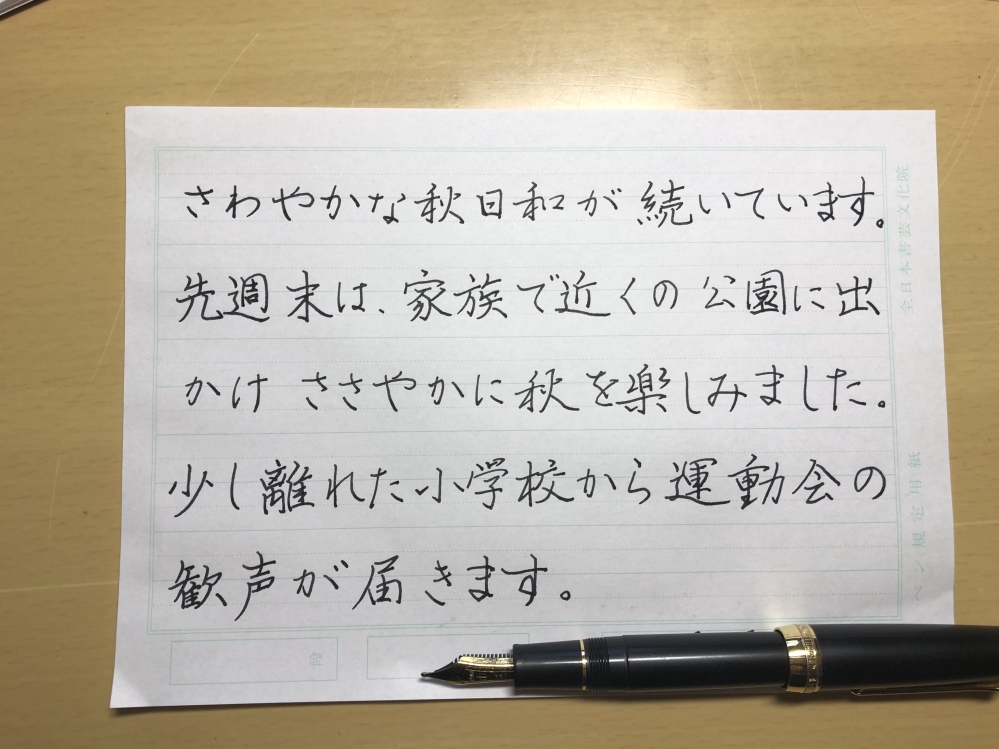 さわやかな秋日和が続いています。
先週末は、家族で近くの公園に出
かけ ささやかに秋を楽しみました。
少し離れた小学校から運動会の
歓声が届きます。
全日本書芸文化院
ペン規定用紙
段